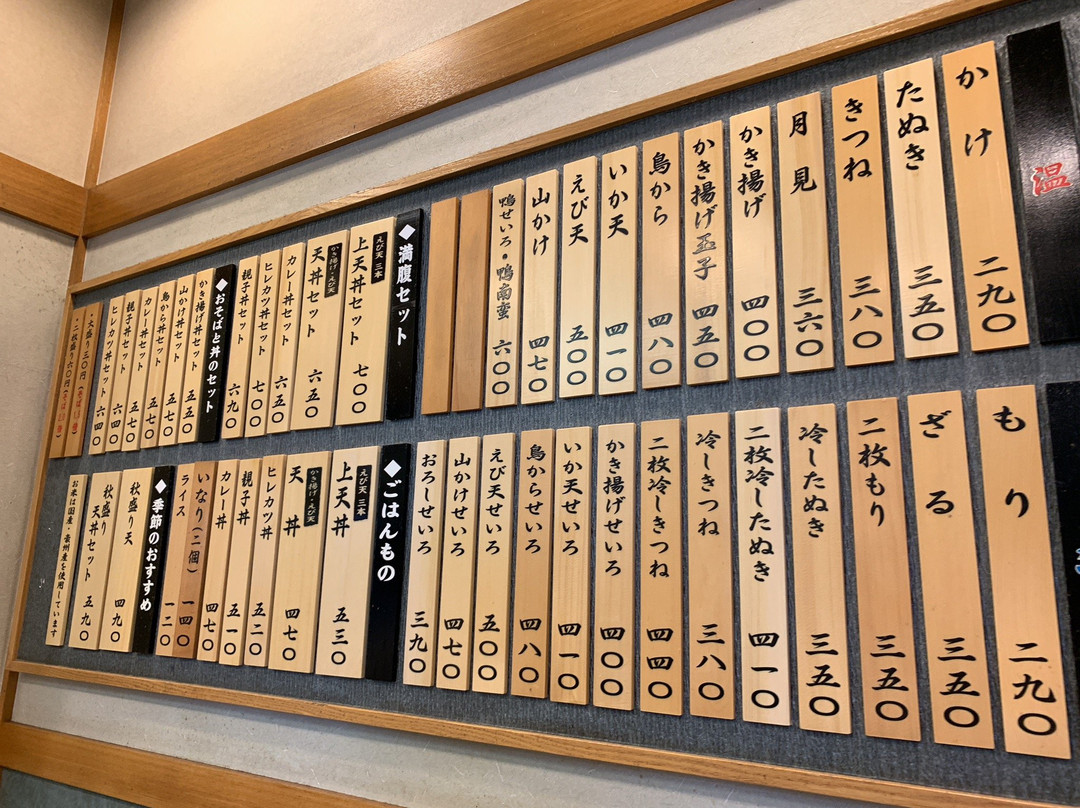 温
かけ 二九〇
たぬき 三五〇
きつね 三八〇
月見 三六〇
かき揚げ 四〇〇
かき揚げ玉子 四五〇
鳥から 四八〇
いか天 四一〇
えび天 五〇〇
山かけ 四七〇
鴨せいろ・鴨南蛮 六〇〇
◆満腹セット
えび天 三本
上天丼セット 七〇〇
かき揚げ・えび天
天丼セット 六五〇
カレー丼セット 六五〇
ヒレカツ丼セット 七〇〇
親子丼セット 六九〇
◆おそばと丼のセット
かき揚げ丼セット 五五〇
山かけ丼セット 五七〇
鳥から丼セット 五七〇
カレー丼セット 五七〇
親子丼セット 五七〇
ヒレカツ丼セット 六四〇
・大盛り三〇円
・二枚盛り六〇円
もり 二九〇
ざる 三五〇
二枚もり 三五〇
冷したぬき 三五〇
二枚冷したぬき 四一〇
冷しきつね 三八〇
二枚冷しきつね 四四〇
かき揚げせいろ 四〇〇
いか天せいろ 四一〇
鳥からせいろ 四八〇
えび天せいろ 五〇〇
山かけせいろ 四七〇
おろしせいろ 三九〇
◆ごはんもの
えび天 三本
上天丼 五三〇
かき揚げ・えび天
天丼 四七〇
ヒレカツ丼 五二〇
親子丼 五一〇
カレー丼 四七〇
いなり(二個) 一四〇
ライス 一二〇
◆季節のおすすめ
秋盛り天 四九〇
秋盛り天丼セット 五九〇
お米は国産・豪州産を使用しています